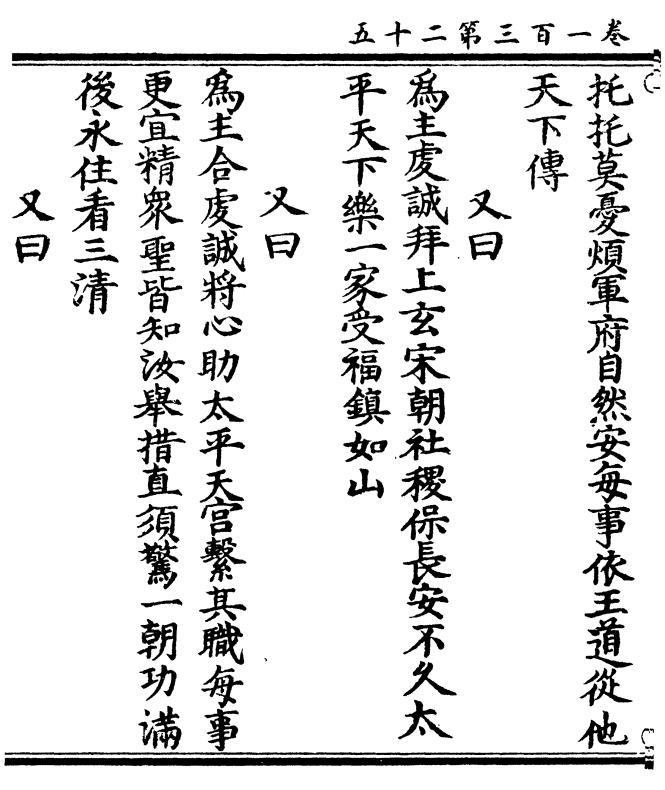 卷一百三第二十五
托托莫憂煩軍府自然安每事依王道從他
天下傳
又曰
爲主虔誠拜上玄宋朝社稷保長安不久太
平天下樂一家受福鎮如山
又曰
爲主合虔誠將心助太平天宮繫其職每事
更宜精衆聖皆知汝舉措直須驚一朝功滿
後永住看三清
又曰